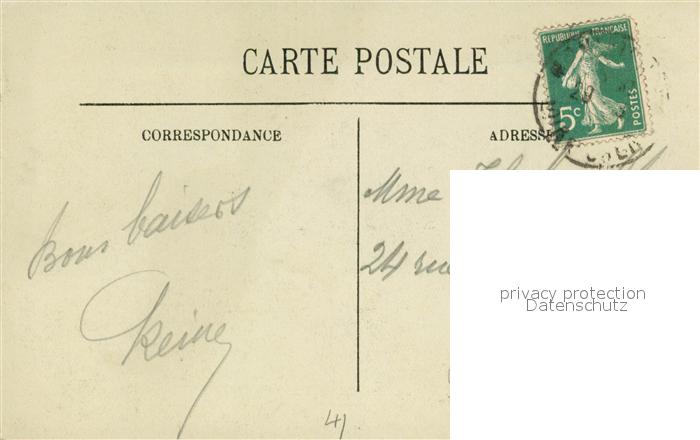 CARTE POSTALE
REPUBLIQUE FRANÇAISE
5c
POSTES
CORRESPONDANCE
ADRESSE
Bons baisers
Reine
Mme
24 rue
41
privacy protection
Datenschutz